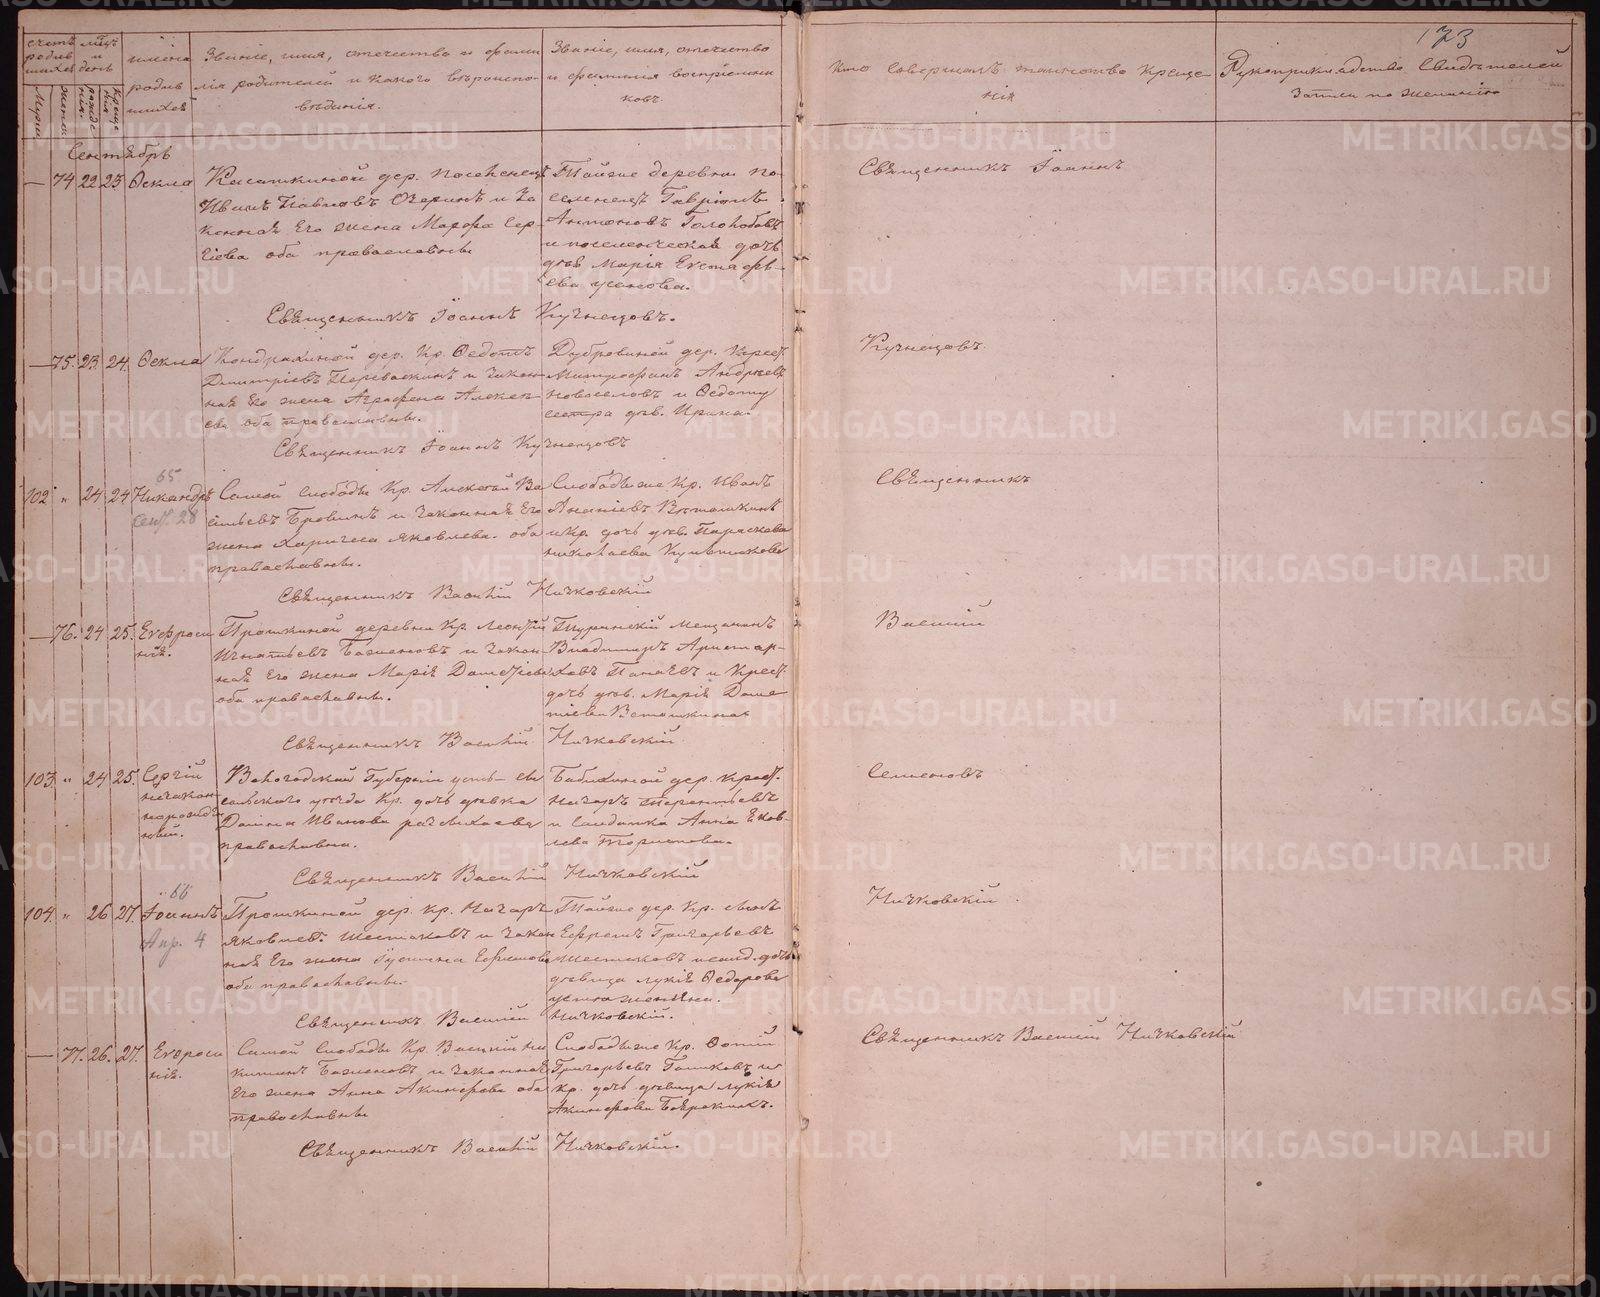 173
счетъ родив шихся
Мужес
женск
мѣц и день
рожде нія.
креще нія
имена родив шихся
Званіе, имя, отечество и фами
лія родителей и какого вѣроиспо-
вѣданія.
Званіе, имя, отечество
и фамилія воспріемни
ковъ.
Кто совершалъ таинство креще
нія
Рукоприкладство свидѣтелей
записи по желанію
Сентябрь
— 74 22 23 Ѳекла
Касаткиной дер. поселенецъ
Иванъ Павловъ Озеринъ и за
конная его жена Марфа Сер-
гіева оба православны
Тойже деревни по-
селенецъ Гавріилъ
Антоновъ Голохобовъ
и поселенческая дочь
дѣв. Марія Евстафі-
ева
Священникъ Іоаннъ Кузнецовъ.
Священникъ Іоаннъ
— 75. 23. 24. Ѳекла
Кондрахиной дер. Кр. Ѳедотъ
Дмитріевъ Переваскинъ и закон
ная его жена Аграфена Алексѣ
ева оба православны.
Дубровиной дер. Крест.
Митрофанъ Андреевъ
Новоселовъ и Ѳедоту
сестра дѣв. Ирина.
Священникъ Іоаннъ Кузнецовъ
Кузнецовъ.
65
102 " 24 24 Никандръ
Сент. 28
Самой слободы Кр. Алексѣй Ва
сильевъ Бровинъ и законная его
жена Харитеса Яковлева. оба
православны.
Слободы же Кр. Иванъ
Ананіевъ Ветошкинъ
и Кр. дочь дѣв. Параскева
Николаева
Священникъ Василій Ничковскій
Священникъ
— 76. 24 25. Евфроси
нія.
Прошкиной деревни Кр. Леонтій
Игнатьевъ Баженовъ и закон
ная его жена Марія Дометіева
оба православны.
Туринскій мещанинъ
Владимиръ Аристар-
ховъ Панаевъ и Крест.
дочь дѣв. Марія Доме
тіева Ветошкина
Священникъ Василій Ничковскій
Василій
103 " 24 25. Сергій
незакон-
норожден
ный.
Вологодской Губерніи усть-сы
сольскаго уѣзда Кр. дочь дѣвка
Домна Иванова
православна.
Бабихиной дер. Крест.
Назаръ Терентьевъ
и солдатка Анна Яков-
лева
Священникъ Василій Ничковскій
Семеновъ
66
104. " 26 27. Іоаннъ
Апр. 4
Прошкиной дер. Кр. Назаръ
Яковлев. Шестаковъ и закон
ная его жена Іустина Ефимова
оба православны.
Тойже дер. Кр. сынъ
Ефремъ Григорьевъ
Шестаковъ и солд. дочь
дѣвица Лукія Ѳедорова
Священникъ Василій Ничковскій.
Ничковскій
— 77. 26. 27. Евфроси
нія.
Самой слободы Кр. Василій Ни
китинъ Баженовъ и законная
его жена Анна Акинфова оба
православны
Слободы же Кр. Фотій
Григорьевъ и
Кр. дочь дѣвица Лукія
Акинфова
Священникъ Василій Ничковскій.
Священникъ Василій Ничковскій